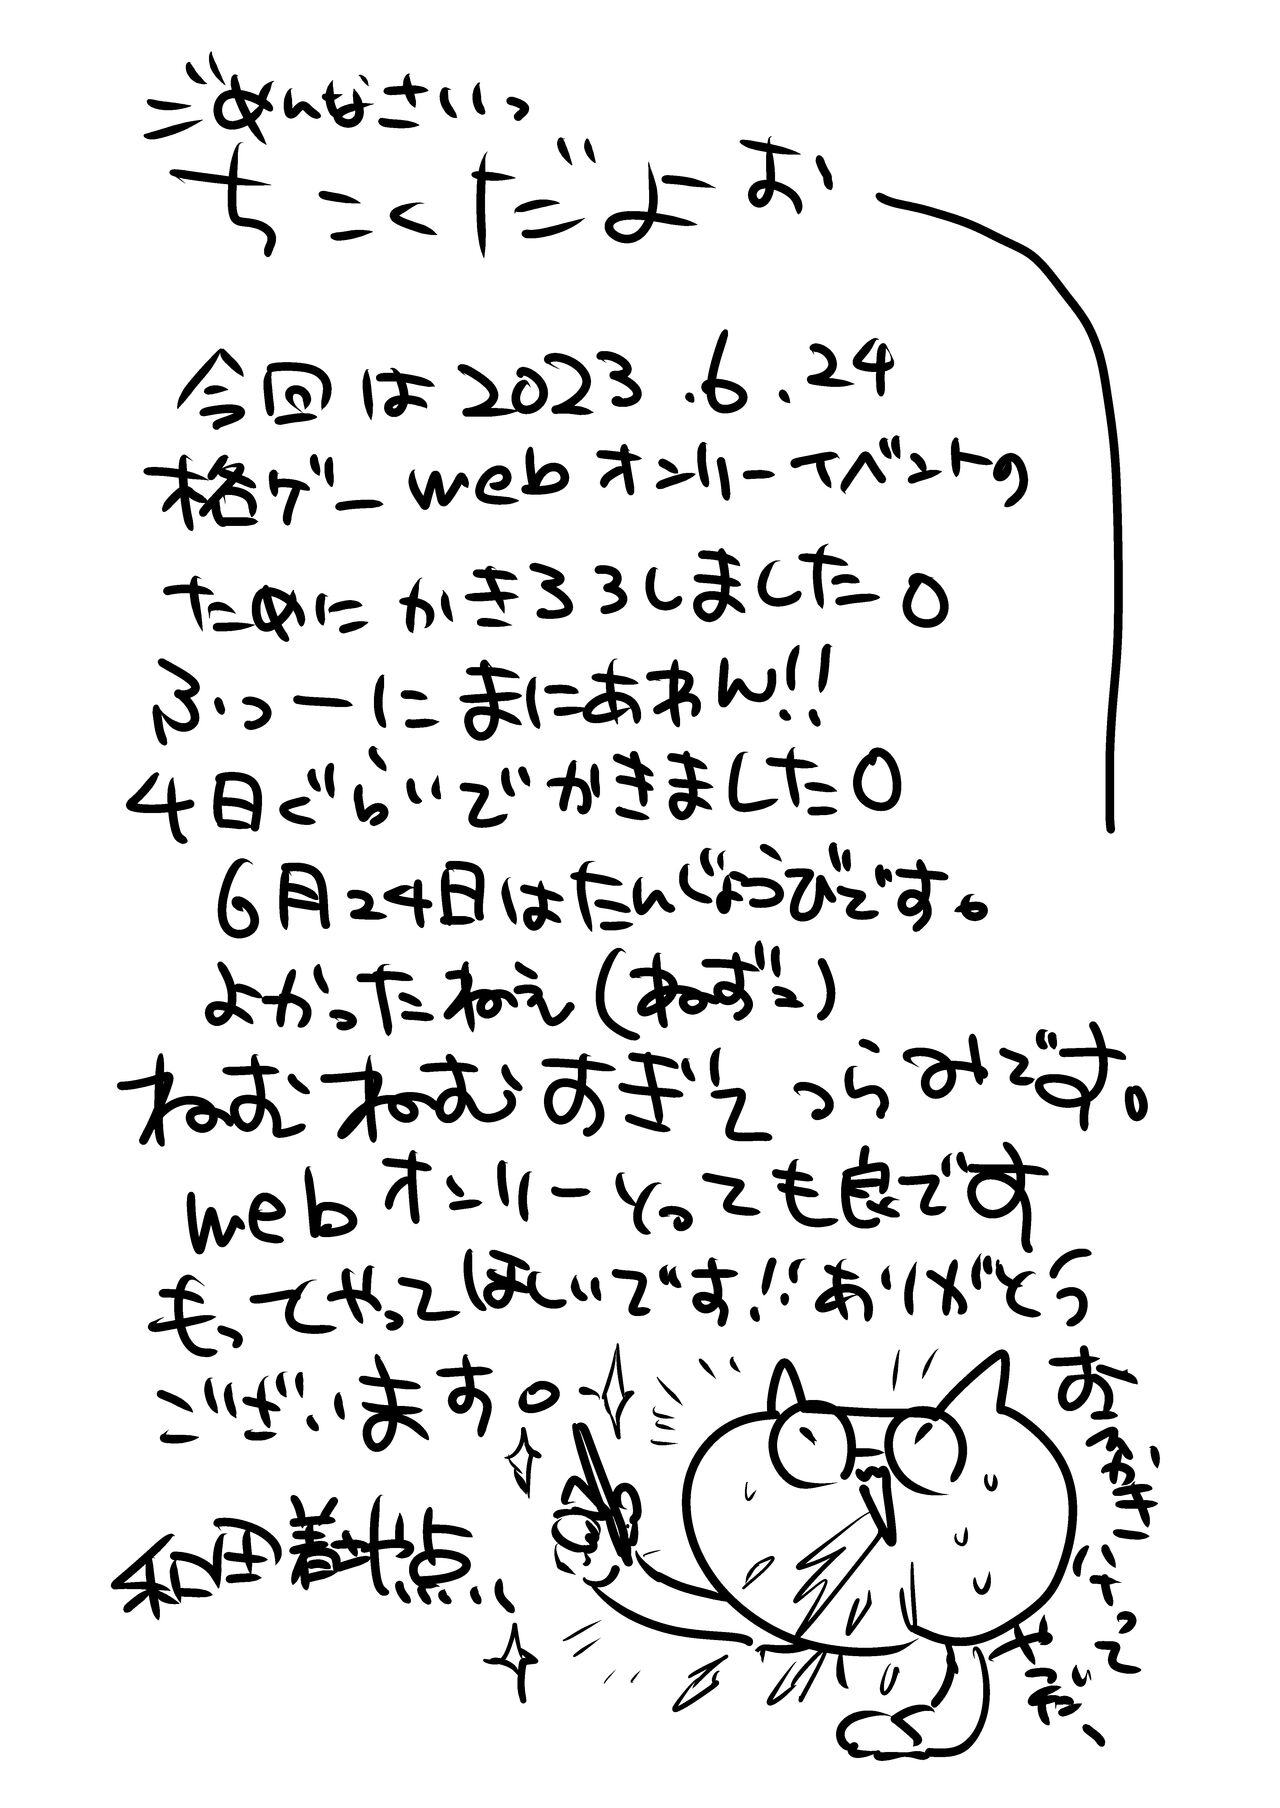 ごめんなさいっ
ちこくだよお
今回は2023.6.24
格ゲーwebオンリーイベントの
ためにかきろろしました。
ふつーにまにあわん!!
4日ぐらいでかきました。
6月24日はたんじょうびです。
よかったねえ(ねずこ)
ねむねむすぎてつらみです。
webオンリーとっても良です
もってやってほしいです!!ありがとう
ございます。